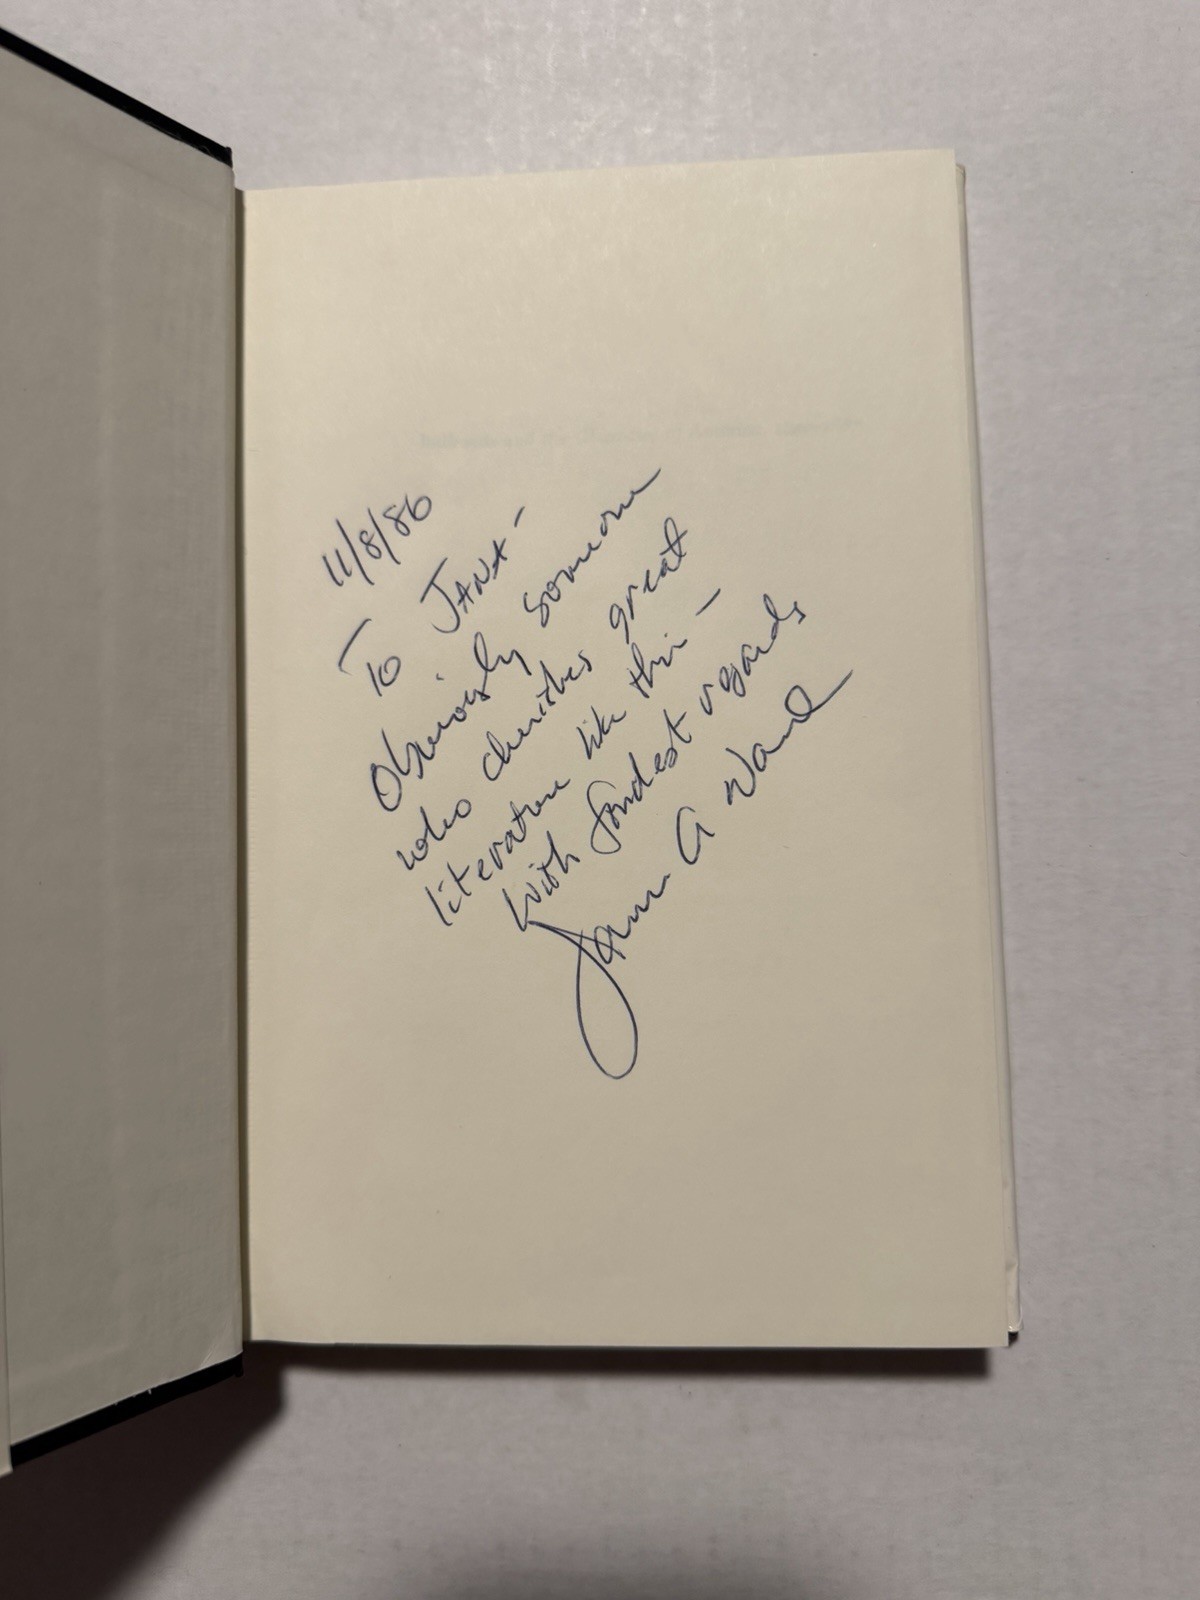 11/8/86
To JANA -
Obviously someone
who cherishes great
literature like this -
With fondest regards
James A Ward